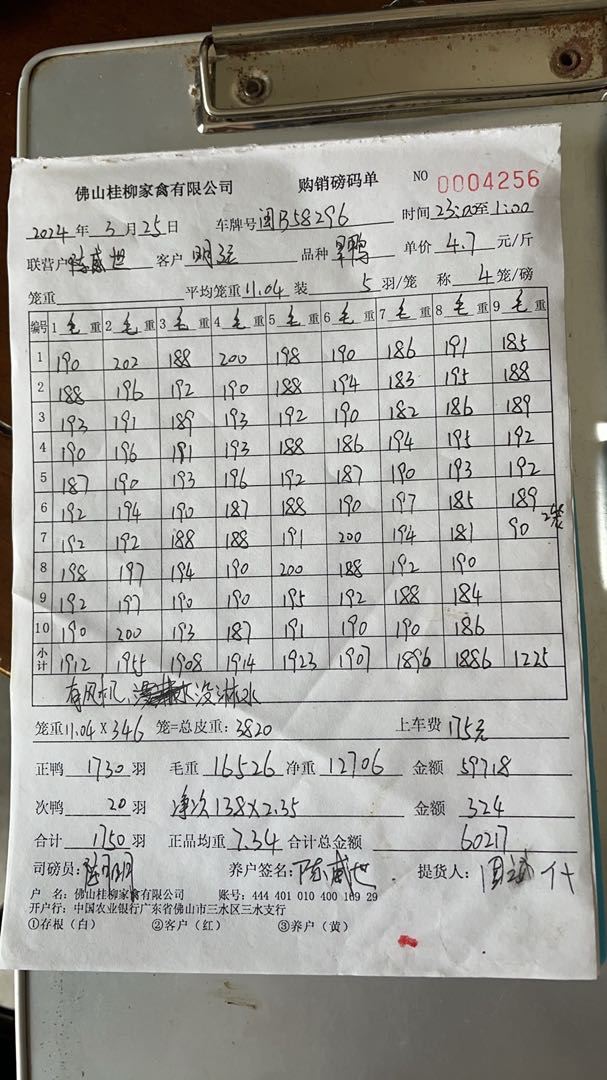 佛山桂柳家禽有限公司 购销磅码单 NO 0004256
2024年3月25日 车牌号 闽B58296 时间 23:00至1:00
联营户 陈威旭 客户 明强 品种 单价 4.7 元/斤
笼重 平均笼重 11.04 装 5 羽/笼 称 4 笼/磅
编号 1 毛重 2 毛重 3 毛重 4 毛重 5 毛重 6 毛重 7 毛重 8 毛重 9 毛重
1 190 202 188 200 198 190 186 191 185
2 188 196 192 190 188 194 183 195 188
3 193 191 189 193 192 190 182 186 189
4 190 196 191 193 188 186 194 195 192
5 187 190 193 196 192 187 190 193 192
6 192 194 190 187 188 190 197 185 189
7 192 192 188 188 191 200 194 181 90 2笼
8 198 197 194 190 200 188 192 190
9 192 197 190 190 195 192 188 184
10 190 200 193 187 191 190 190 186
小计 1912 1955 1908 1914 1923 1907 1896 1886 1225
有风机, 没淋水
笼重 11.04 × 346 笼=总皮重: 3820 上车费 175元
正鸭 1730 羽 毛重 16526 净重 12706 金额 59718
次鸭 20 羽 净次 138×2.35 金额 324
合计 1750 羽 正品均重 7.34 合计总金额 60217
司磅员: 养户签名: 陈威旭 提货人:
户 名: 佛山桂柳家禽有限公司 账号: 444 401 010 400 169 29
开户行: 中国农业银行广东省佛山市三水区三水支行
①存根(白) ②客户(红) ③养户(黄)